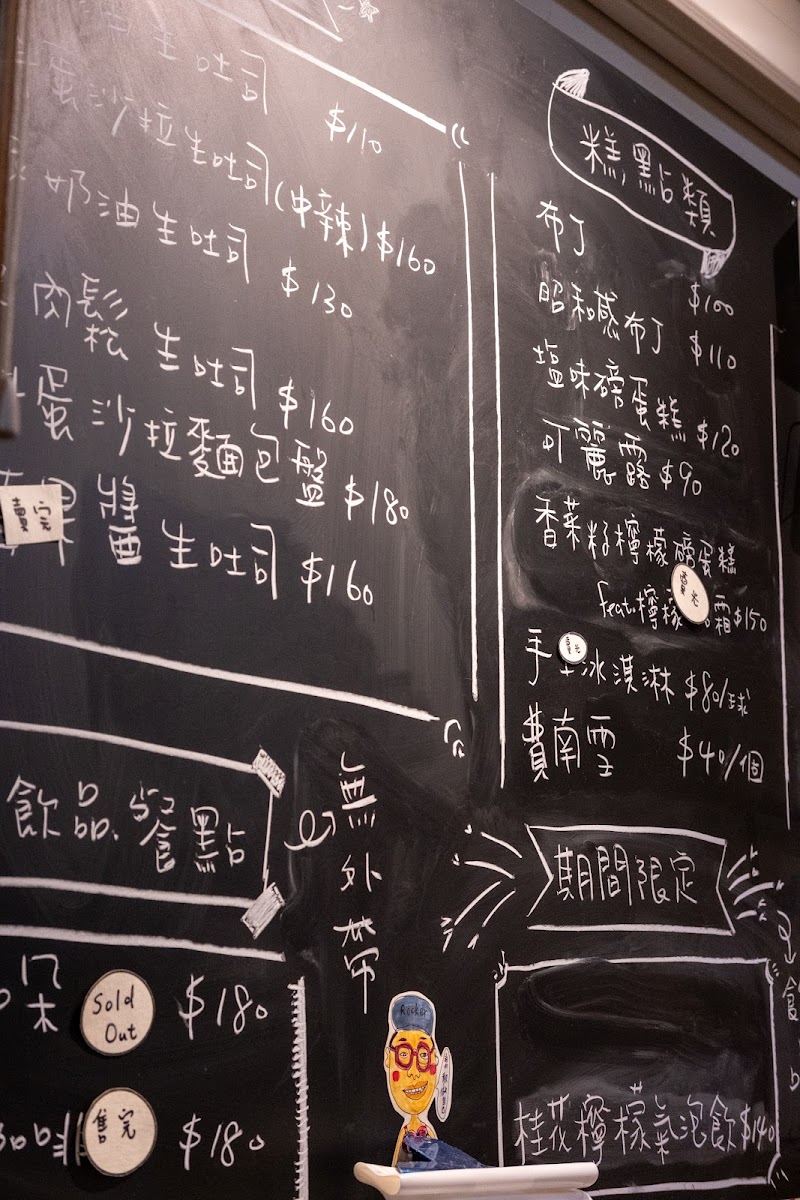 生吐司 $110
蛋沙拉生吐司(中辣) $160
奶油生吐司 $130
肉鬆生吐司 $160
蛋沙拉麵包盤 $180
賣完
果醬生吐司 $160
飲品.餐點
無外帶
朵 $180
Sold Out
$180
售完
糕點類
布丁 $100
昭和感布丁 $110
塩味磅蛋糕 $120
可麗露 $90
香菜籽檸檬磅蛋糕
feat.檸檬 霜 $150
手 冰淇淋 $80/球
費南雪 $40/個
期間限定
桂花檸檬氣泡飲 $140
Rocker